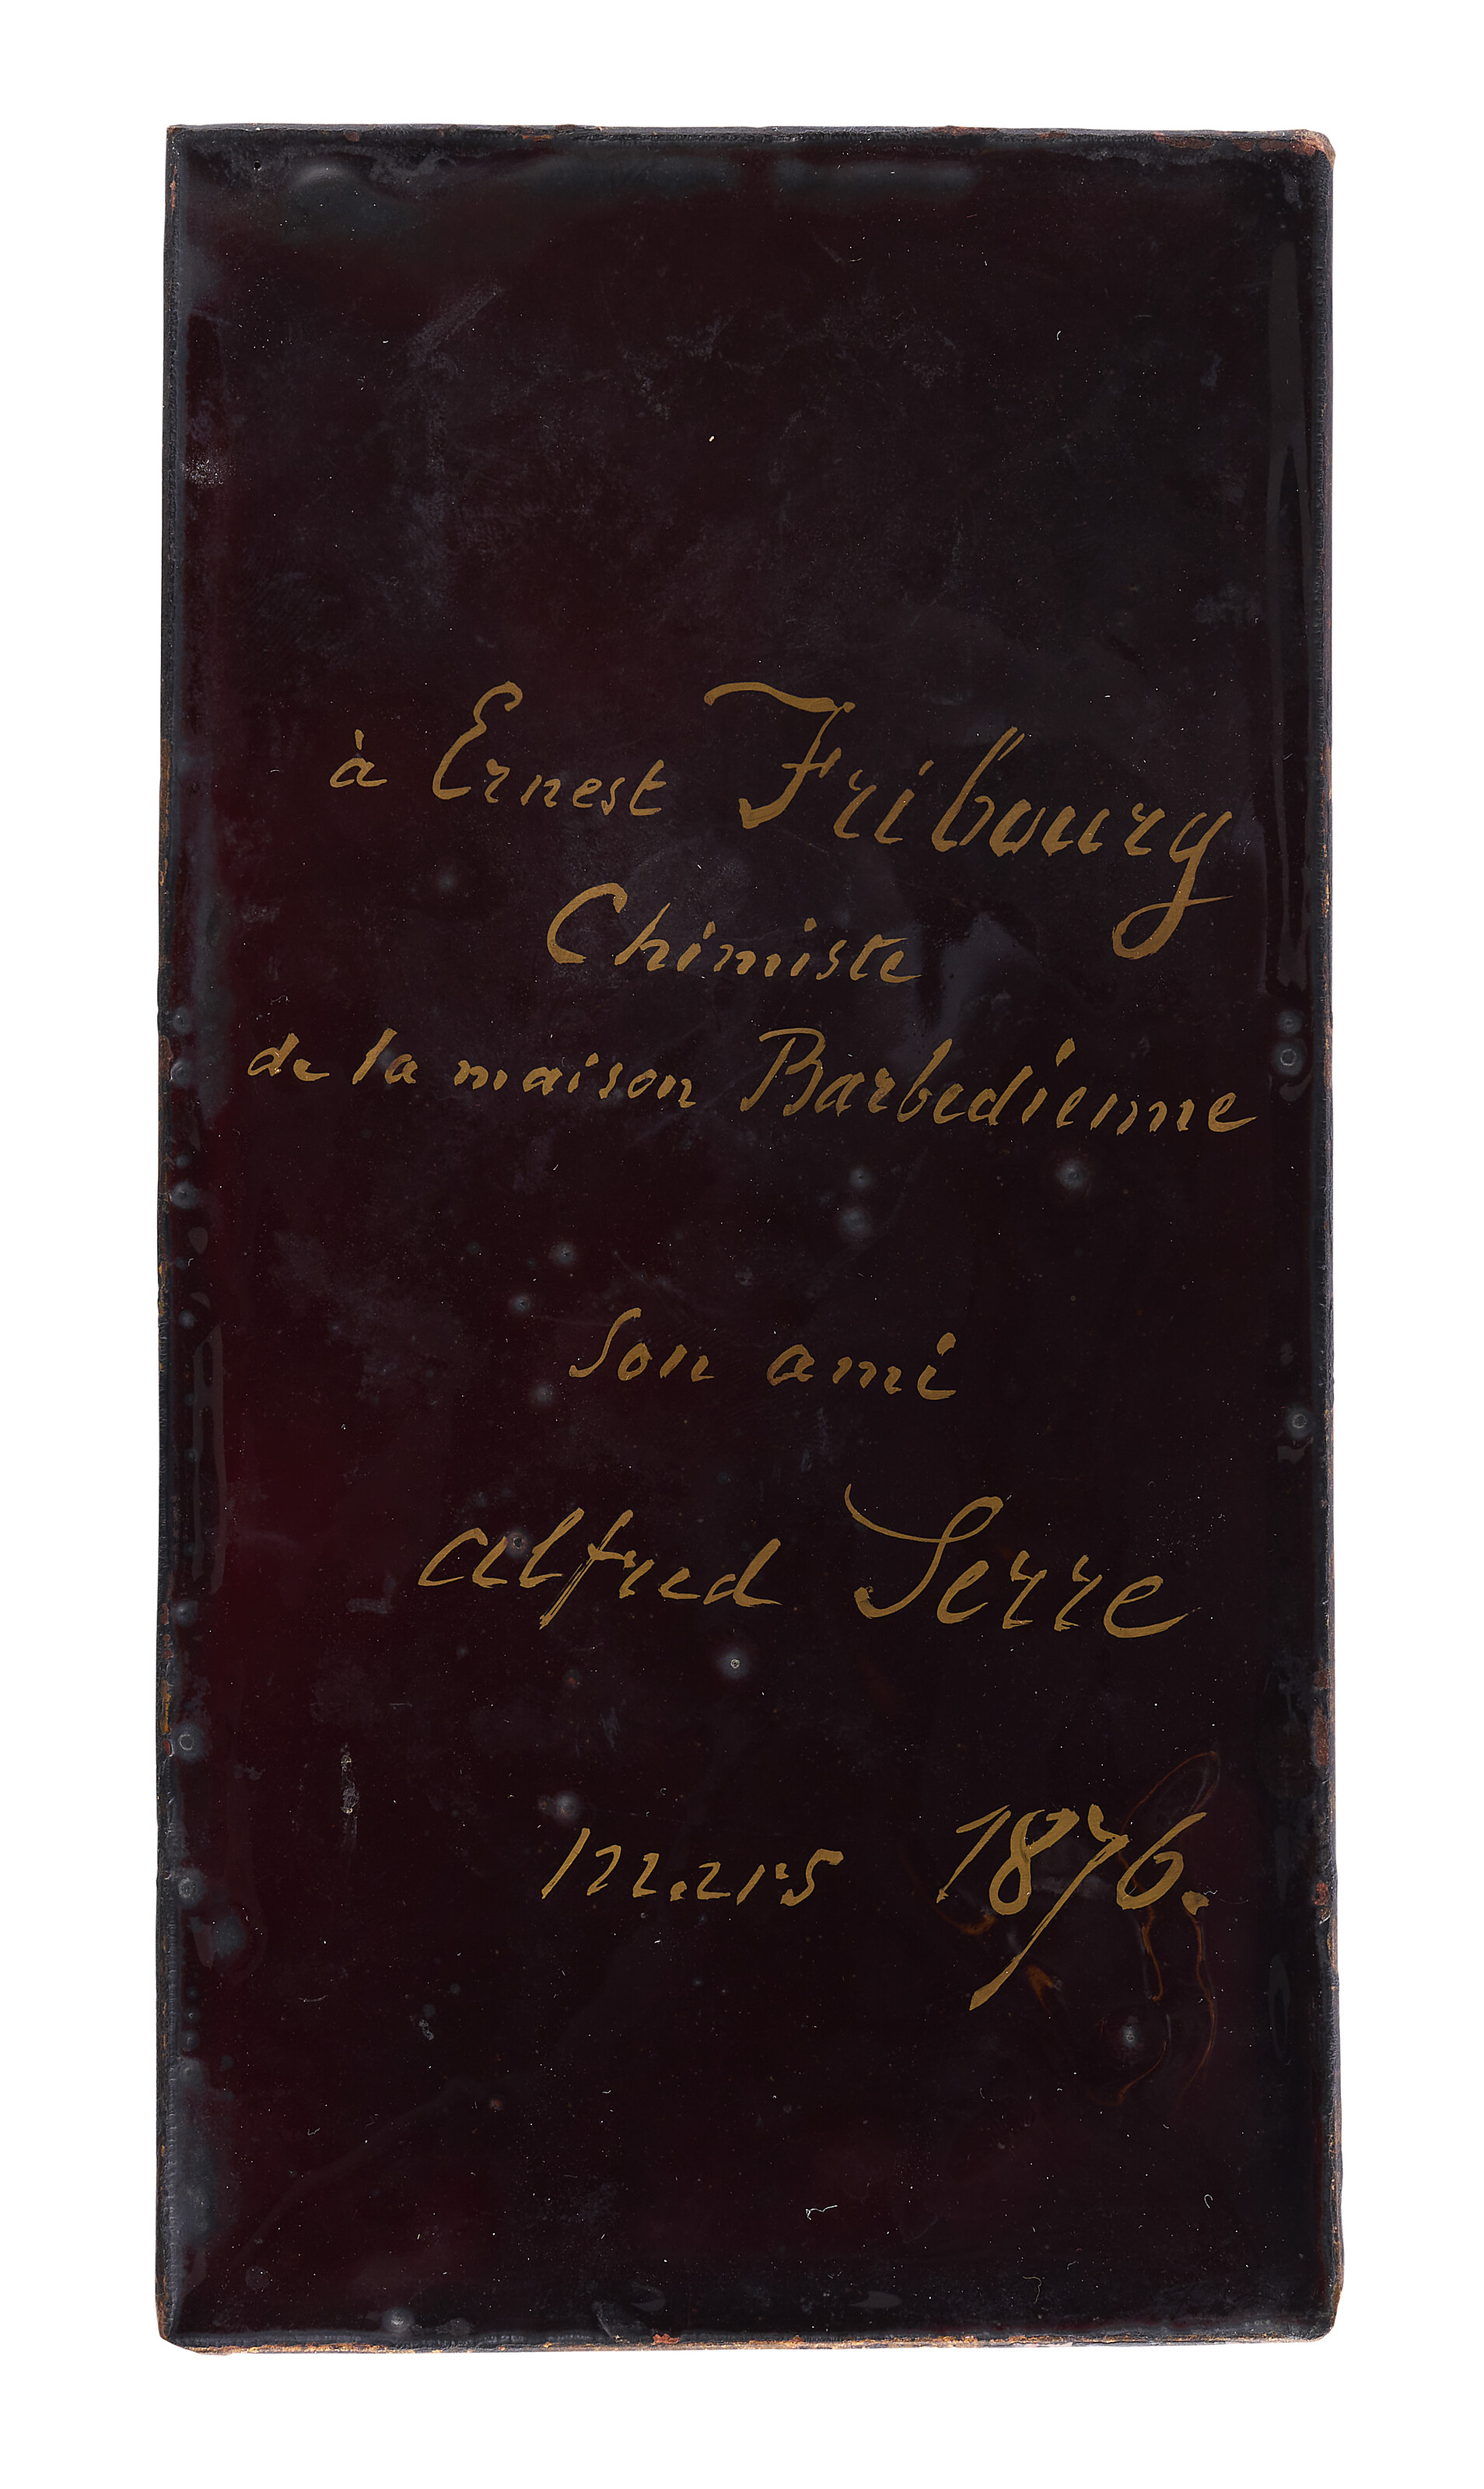 à Ernest Fribourg
Chimiste
de la maison Barbedienne
Son ami
alfred Serre
mars 1876.